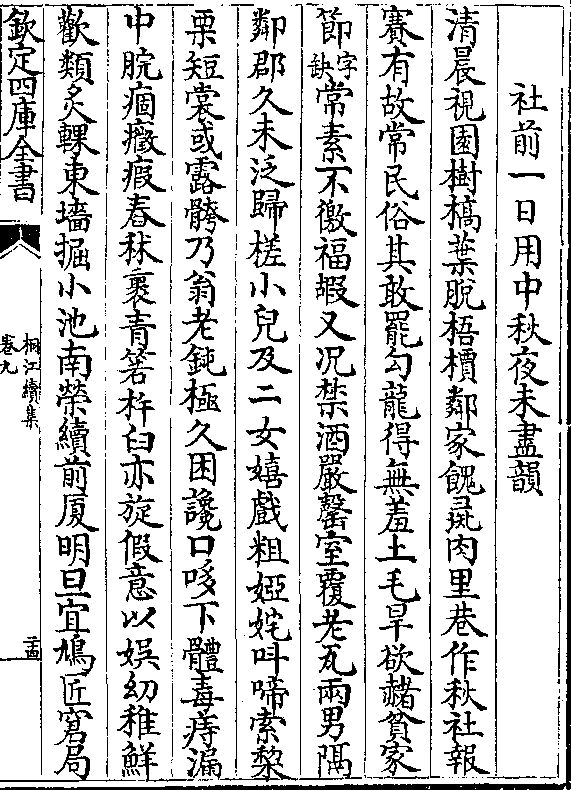 社前一日用中秋夜未盡韻
清晨視園樹槁葉脫梧檟鄰家餽彘肉里巷作秋社報
賽有故常民俗其敢罷勾龍得無羞土毛旱欲赭貧家
節字缺常素不徼福嘏又况禁酒嚴罄室覆老瓦兩男隔
鄰郡久未泛歸槎小兒及二女嬉戲粗婭姹呌啼索棃
栗短裳或露髈乃翁老鈍極久困讒口哆下體毒痔漏
中脘痼癥瘕舂秫裹青箬杵臼亦旋假意以娱幼稚鮮
歡類炙輠東墻掘小池南榮續前厦明旦宜鳩匠窘局
欽定四庫全書
桐江續集
卷九